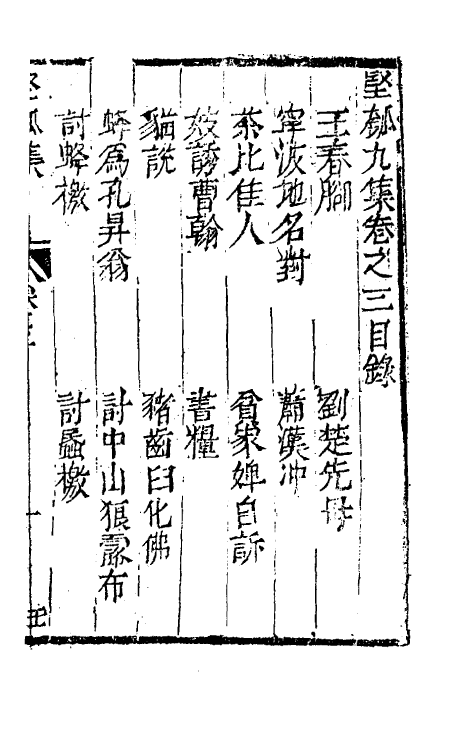 堅瓠九集卷之三目錄
王春腳 劉楚先母
寧波地名對 蕭漢冲
茶比佳人 貧家婢自訴
妓誘曹翰 書糧
貓說 豬齒臼化佛
蜂為孔昇翁 討中山狼露布
討蜂檄 討蝨檄
堅瓠集
一